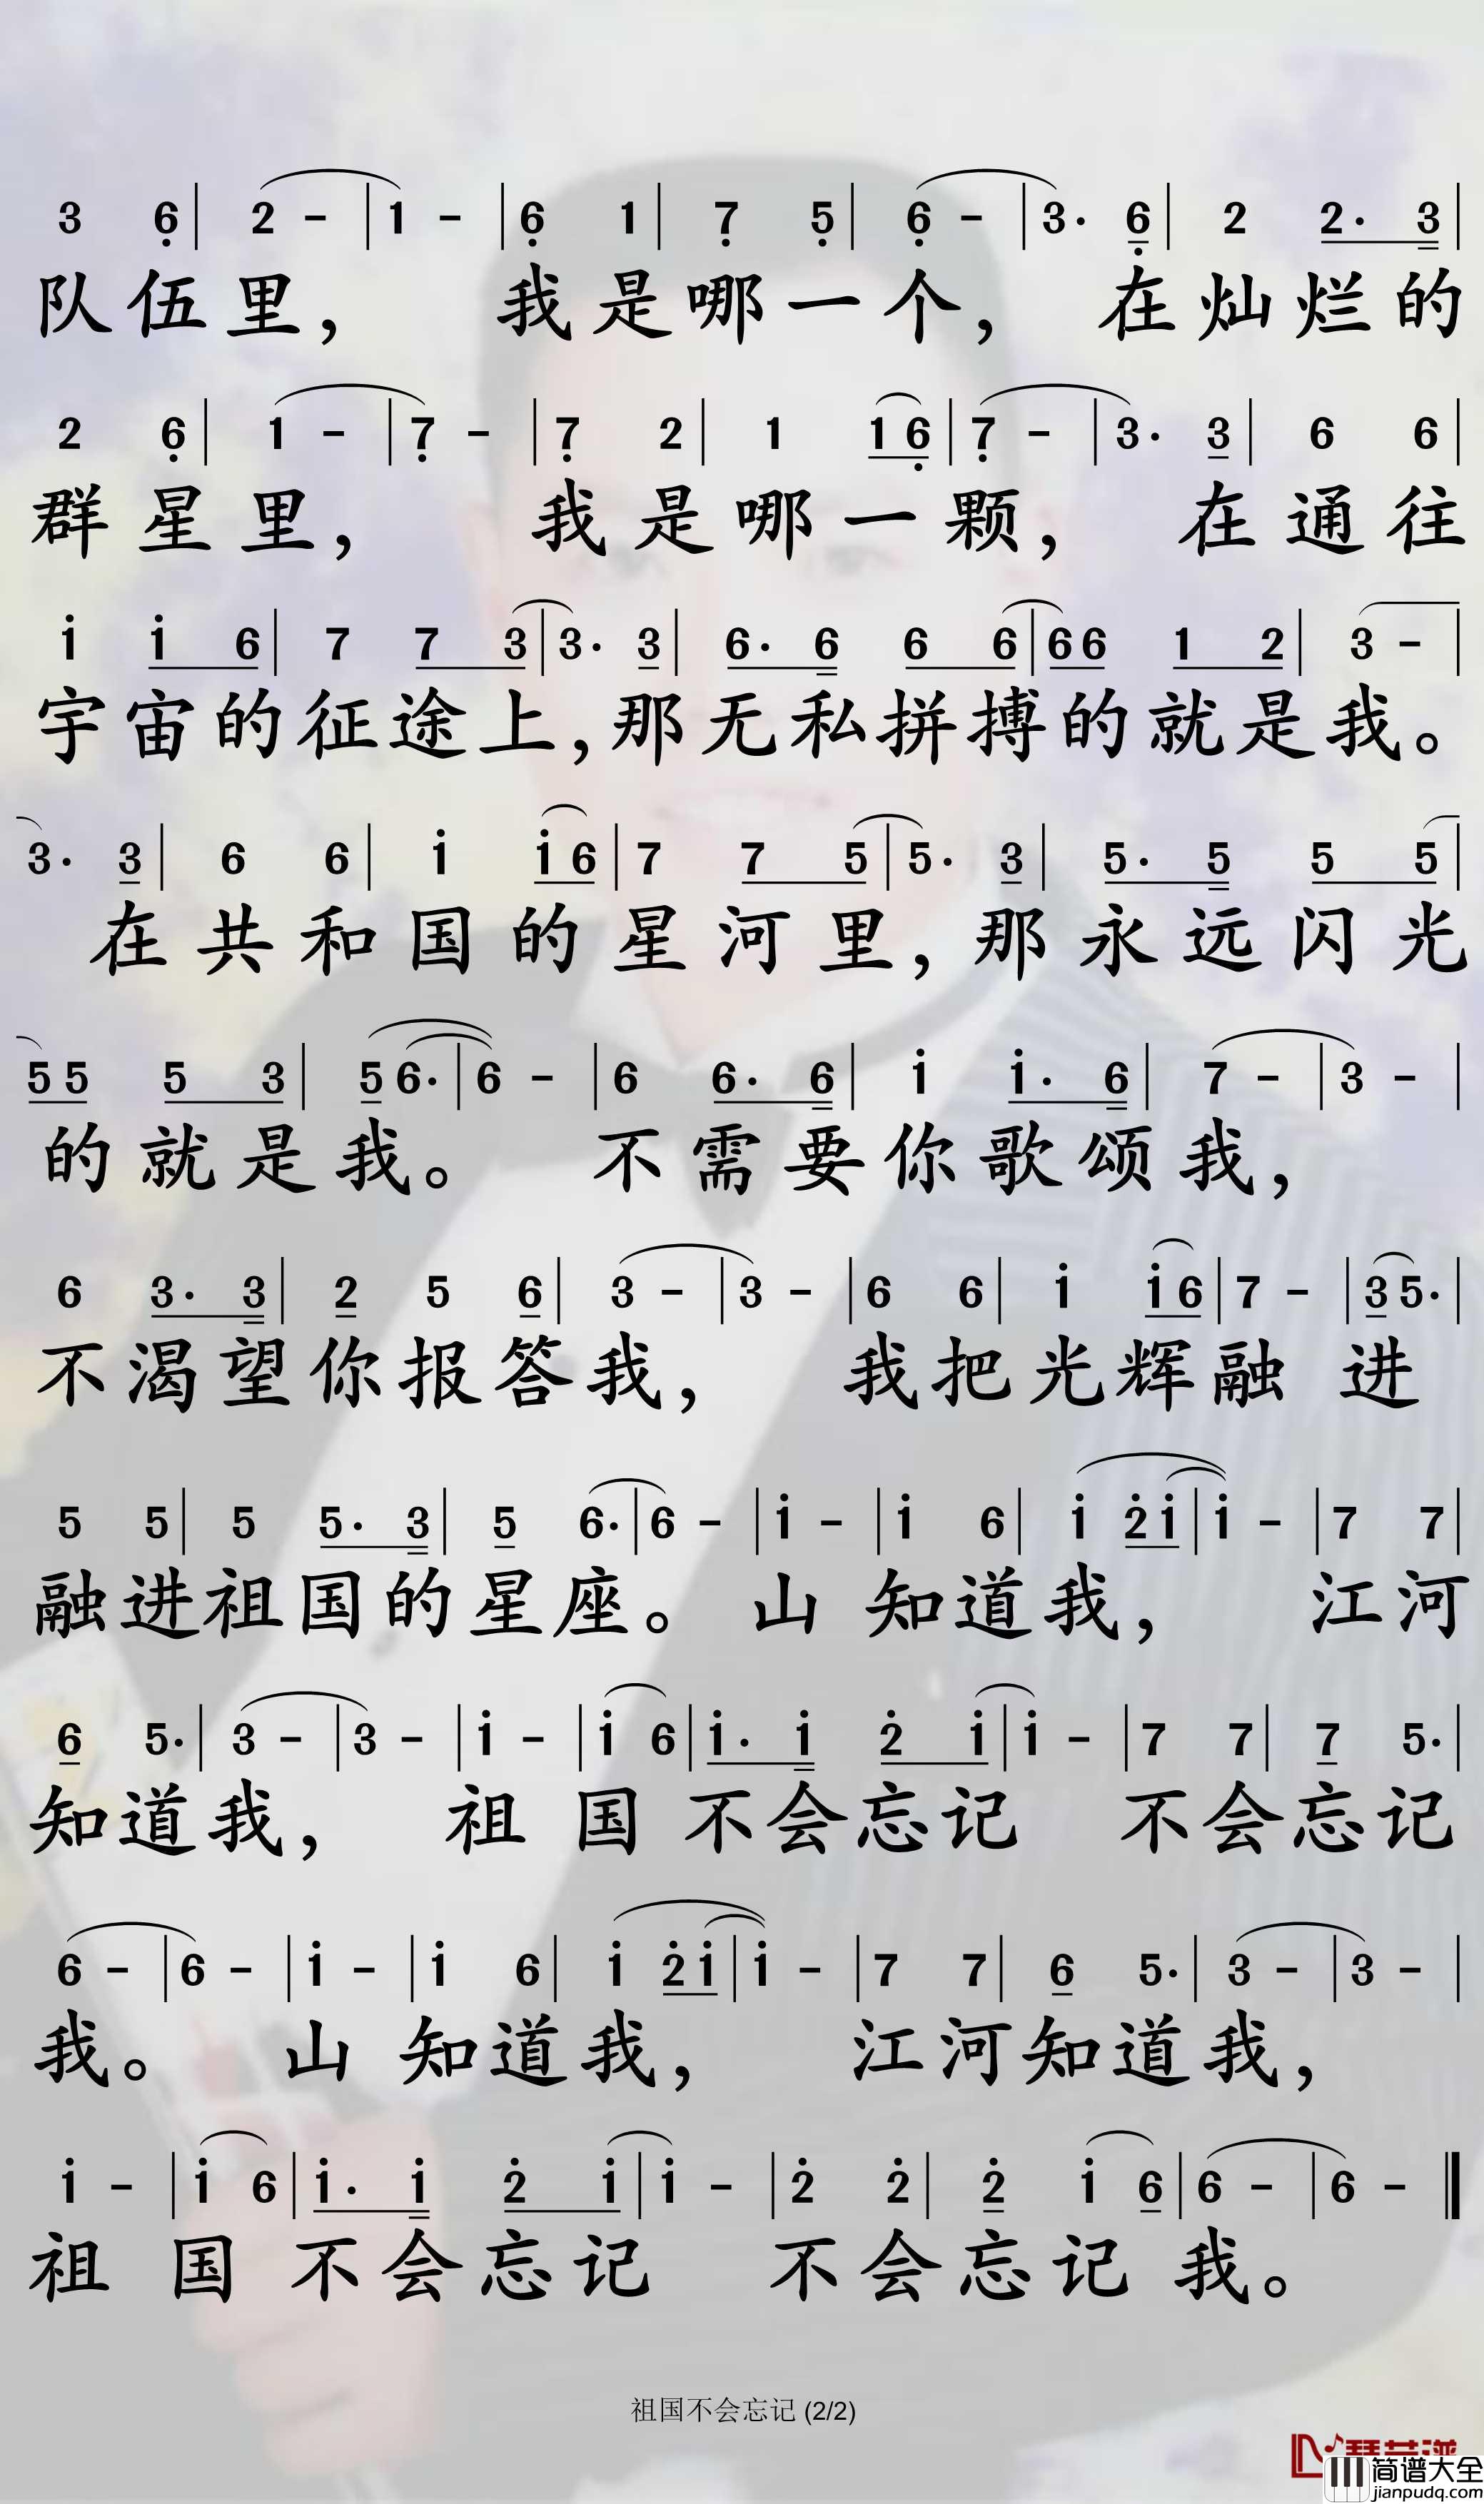 3 6 | 2 - | 1 - | 6 1 | 7 5 | 6 - | 3· 6 | 2 2· 3 |
队伍里， 我是哪一个， 在灿烂的
2 6 | 1 - | 7 - | 7 2 | 1 1 6 | 7 - | 3· 3 | 6 6 |
群星里， 我是哪一颗， 在通往
i i 6 | 7 7 3 | 3· 3 | 6· 6 6 6 | 6 6 1 2 | 3 - |
宇宙的征途上，那无私拼搏的就是我。
3· 3 | 6 6 | i i 6 | 7 7 5 | 5· 3 | 5· 5 5 5 |
在共和国的星河里，那永远闪光
5 5 5 3 | 5 6· | 6 - | 6 6· 6 | i i· 6 | 7 - | 3 - |
的就是我。 不需要你歌颂我，
6 3· 3 | 2 5 6 | 3 - | 3 - | 6 6 | i i 6 | 7 - | 3 5· |
不渴望你报答我， 我把光辉融 进
5 5 | 5 5· 3 | 5 6· | 6 - | i - | i 6 | i 2 i | i - | 7 7 |
融进祖国的星座。 山 知道我， 江河
6 5· | 3 - | 3 - | i - | i 6 | i· i 2 i | i - | 7 7 | 7 5· |
知道我， 祖 国 不会忘记 不会忘记
6 - | 6 - | i - | i 6 | i 2 i | i - | 7 7 | 6 5· | 3 - | 3 - |
我。 山 知道我， 江河知道我，
i - | i 6 | i· i 2 i | i - | 2 2 | 2 i 6 | 6 - | 6 - ‖
祖 国 不会忘记 不会忘记 我。
祖国不会忘记 (2/2)
简谱大全
jianpudq.com